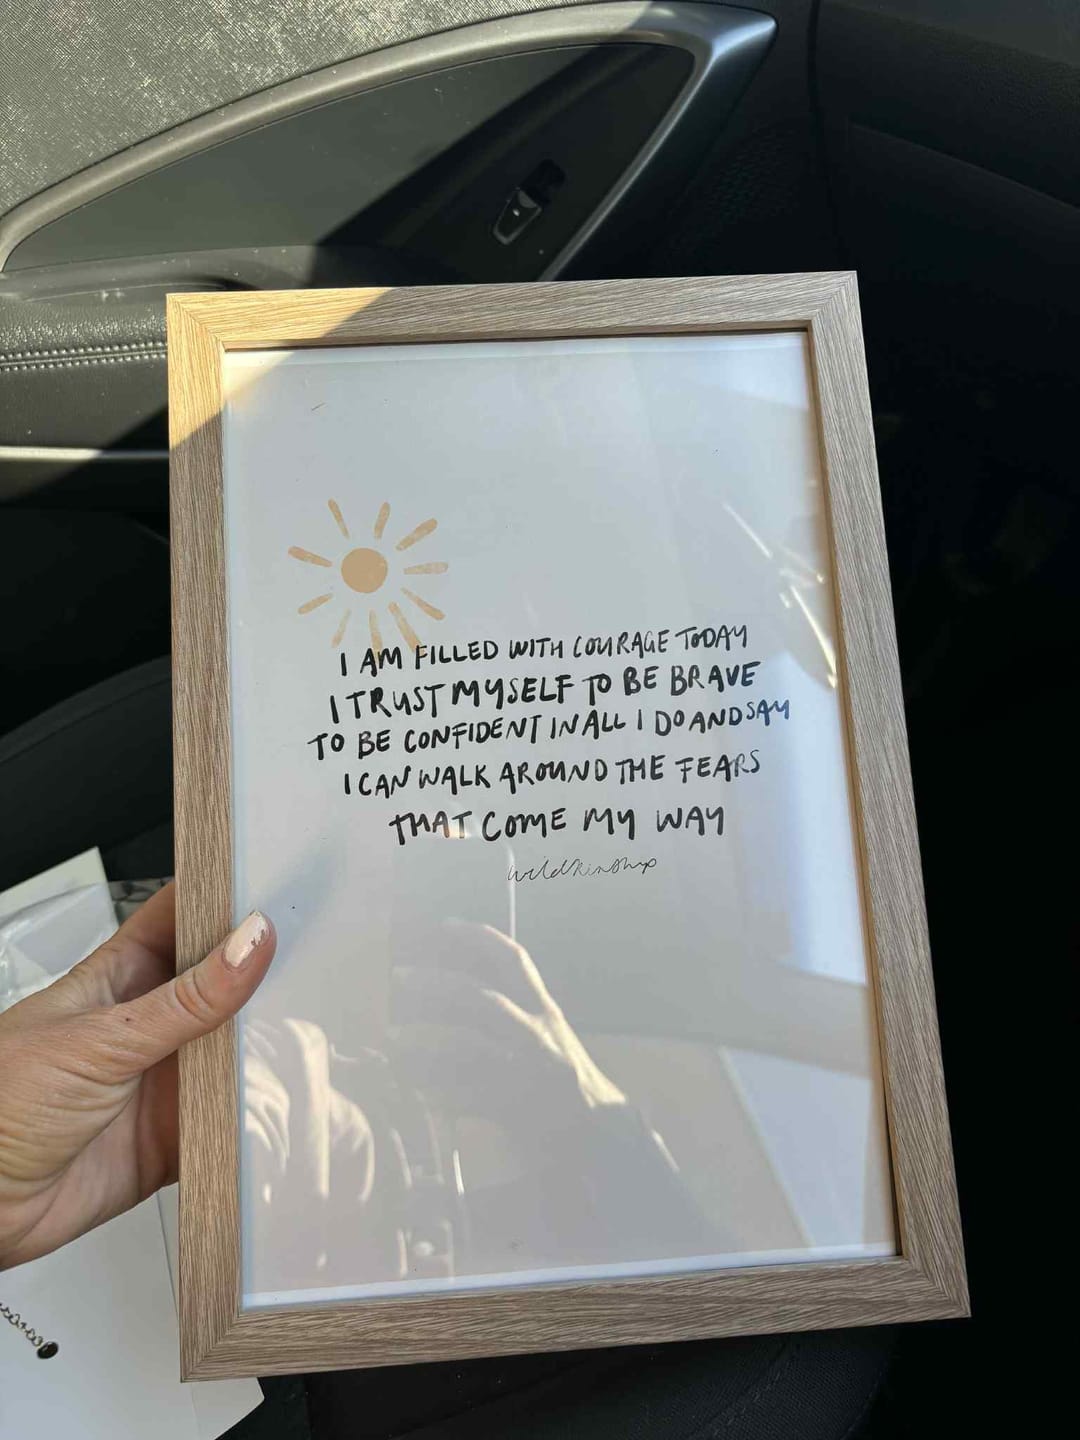 I AM FILLED WITH COURAGE TODAY
I TRUST MYSELF TO BE BRAVE
TO BE CONFIDENT IN ALL I DO AND SAY
I CAN WALK AROUND THE FEARS
THAT COME MY WAY
wildkinship